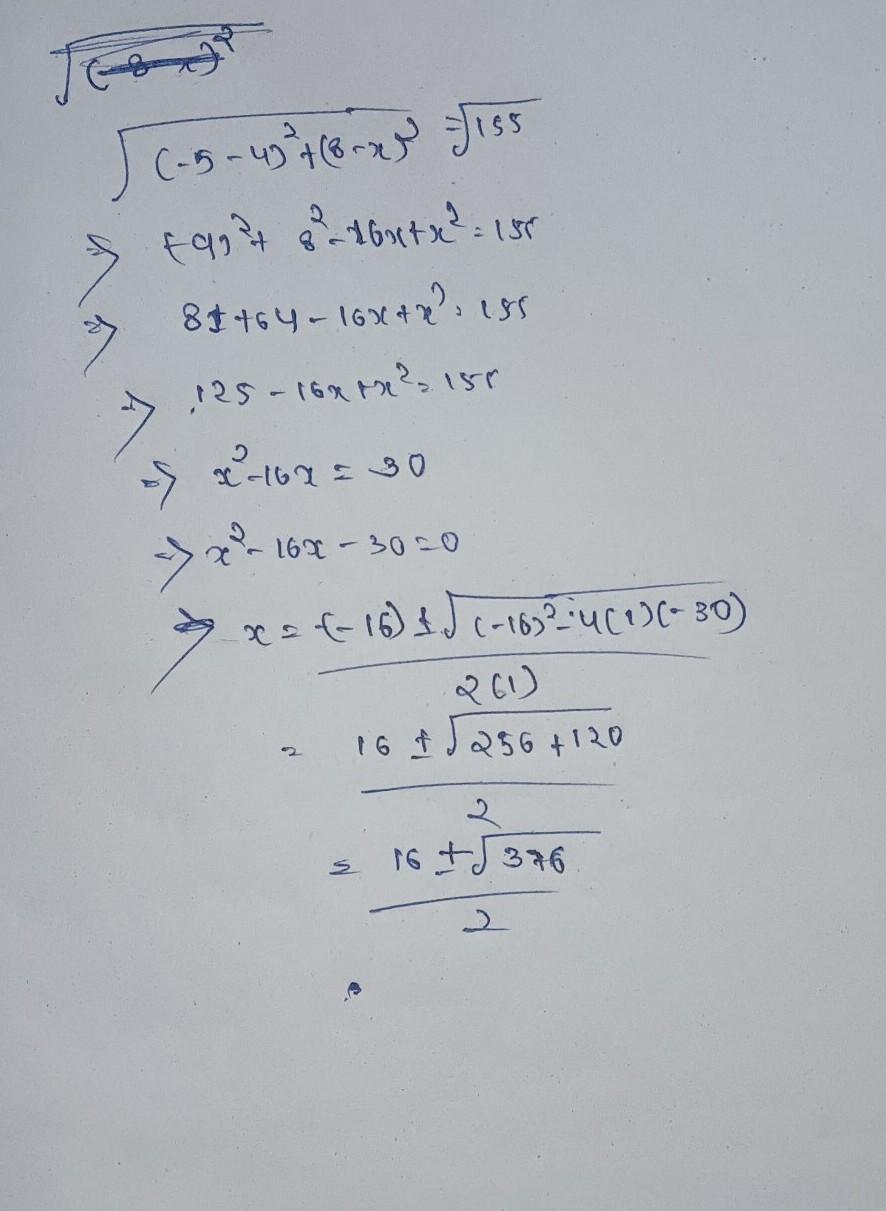 √(-8-x)²
√(-5-4)²+(8-x)² = √155
⇒ (-9)²+ 8²-16x+x² = 155
⇒ 81+64-16x+x² = 155
⇒ 125-16x+x² = 155
⇒ x²-16x = 30
⇒ x²-16x-30=0
⇒ x = -(-16) ± √(-16)²-4(1)(-30)
2(1)
= 16 ± √256+120
2
= 16 ± √376
2